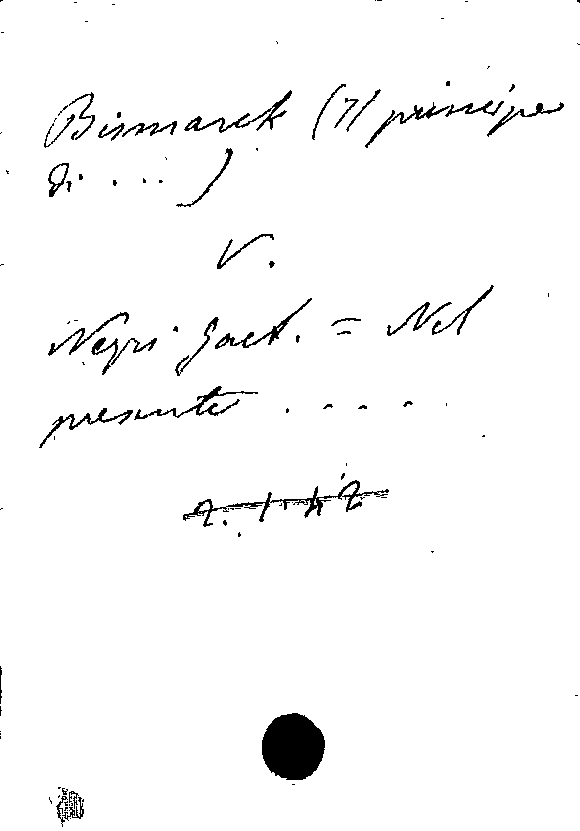 Bismarck (Il principe
di ... )
V.
Negri Gaet. = Nel
presente . . . . .
2. 1 42